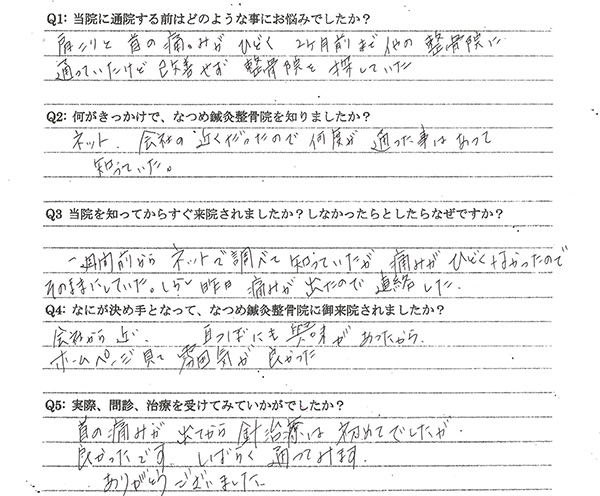 Q1: 当院に通院する前はどのような事にお悩みでしたか？
肩こりと首の痛みがひどく 2ヶ月前まで他の整骨院に
通っていたけど改善せず 整骨院を探していた
Q2: 何がきっかけで、なつめ鍼灸整骨院を知りましたか？
ネット、会社の近くだったので何度か通った事はあって
知っていた。
Q3 当院を知ってからすぐ来院されましたか？しなかったらとしたらなぜですか？
一週間前からネットで調べて知っていたが 痛みがひどくなかったので
そのままにしていた。しかし昨日 痛みが出たので連絡した。
Q4: なにが決め手となって、なつめ鍼灸整骨院に御来院されましたか？
会社から近い、耳つぼにも興味があったから、
ホームページ見て雰囲気が良かった
Q5: 実際、問診、治療を受けてみていかがでしたか？
首の痛みが出てから針治療は初めてでしたが、
良かったです しばらく通ってみます。
ありがとうございました